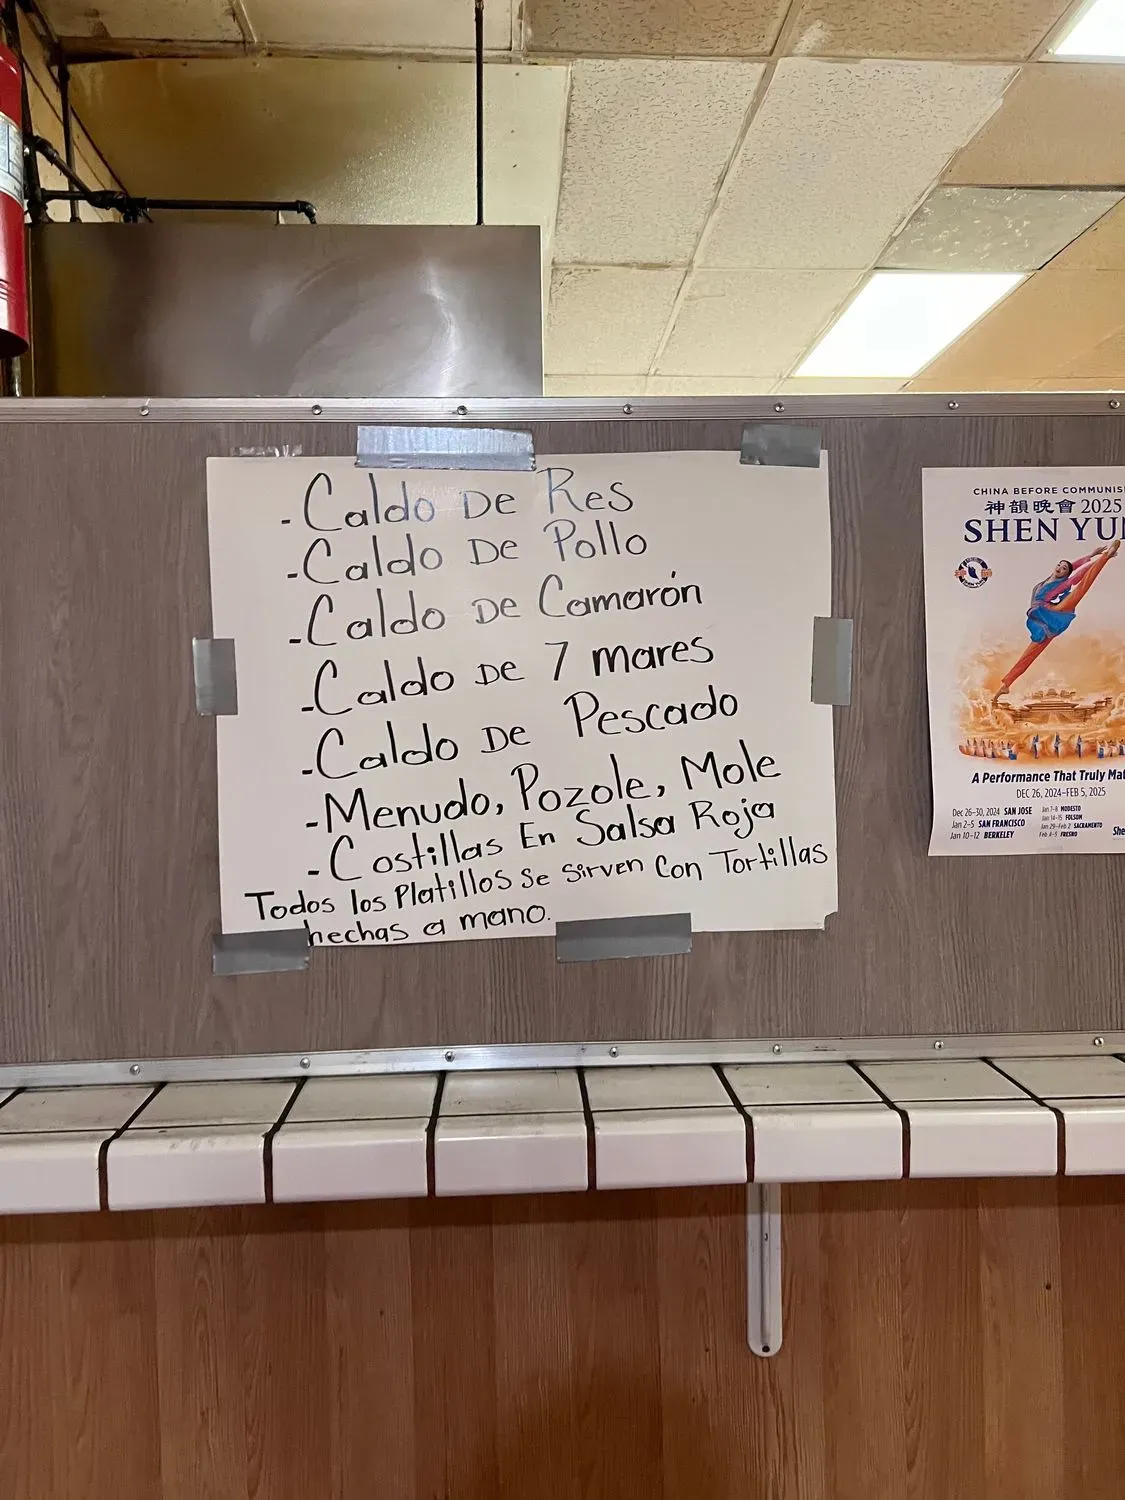 - Caldo De Res
- Caldo De Pollo
- Caldo De Camarón
- Caldo De 7 mares
- Caldo De Pescado
- Menudo, Pozole, Mole
- Costillas En Salsa Roja
Todos los Platillos Se Sirven Con Tortillas
hechas a mano.
CHINA BEFORE COMMUNIS
神韻晚會 2025
SHEN YU
A Performance That Truly Mat
DEC 26, 2024–FEB 5, 2025
Dec 26-30, 2024 SAN JOSE
Jan 2-5 SAN FRANCISCO
Jan 10-12 BERKELEY
Jan 7-8 MODESTO
Jan 14-15 FOLSOM
Jan 29-Feb 2 SACRAMENTO
Feb 4-5 FRESNO
She